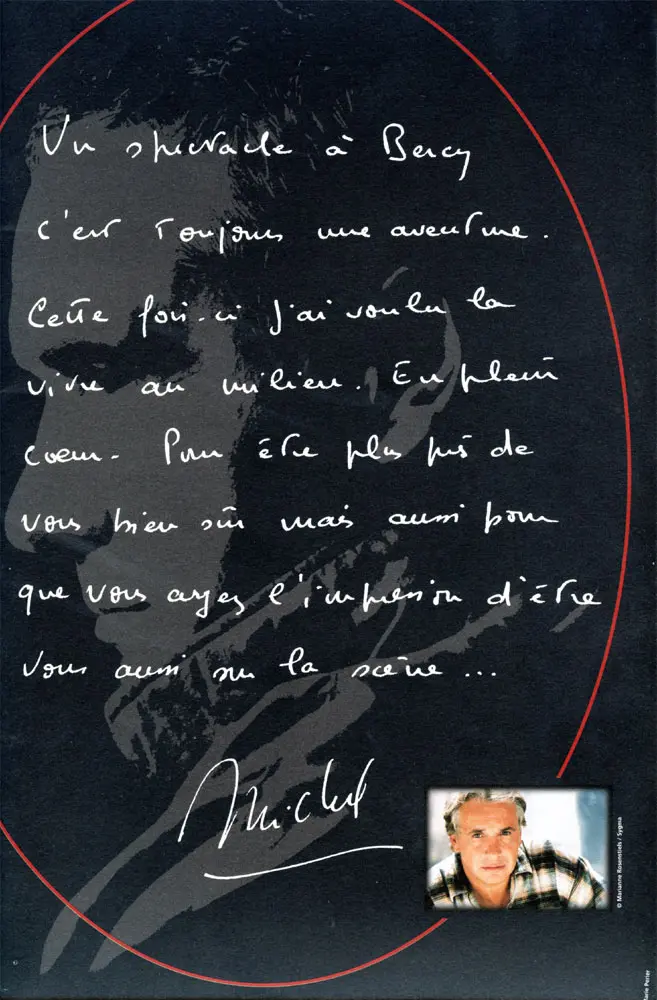 Un spectacle à Bercy
c'est toujours une aventure.
Cette fois-ci j'ai voulu la
vivre au milieu. En plein
coeur. Pour être plus près de
vous bien sûr mais aussi pour
que vous ayez l'impression d'être
vous aussi sur la scène...
Michel
© Marianne Rosenstiehl / Sygma
Perier